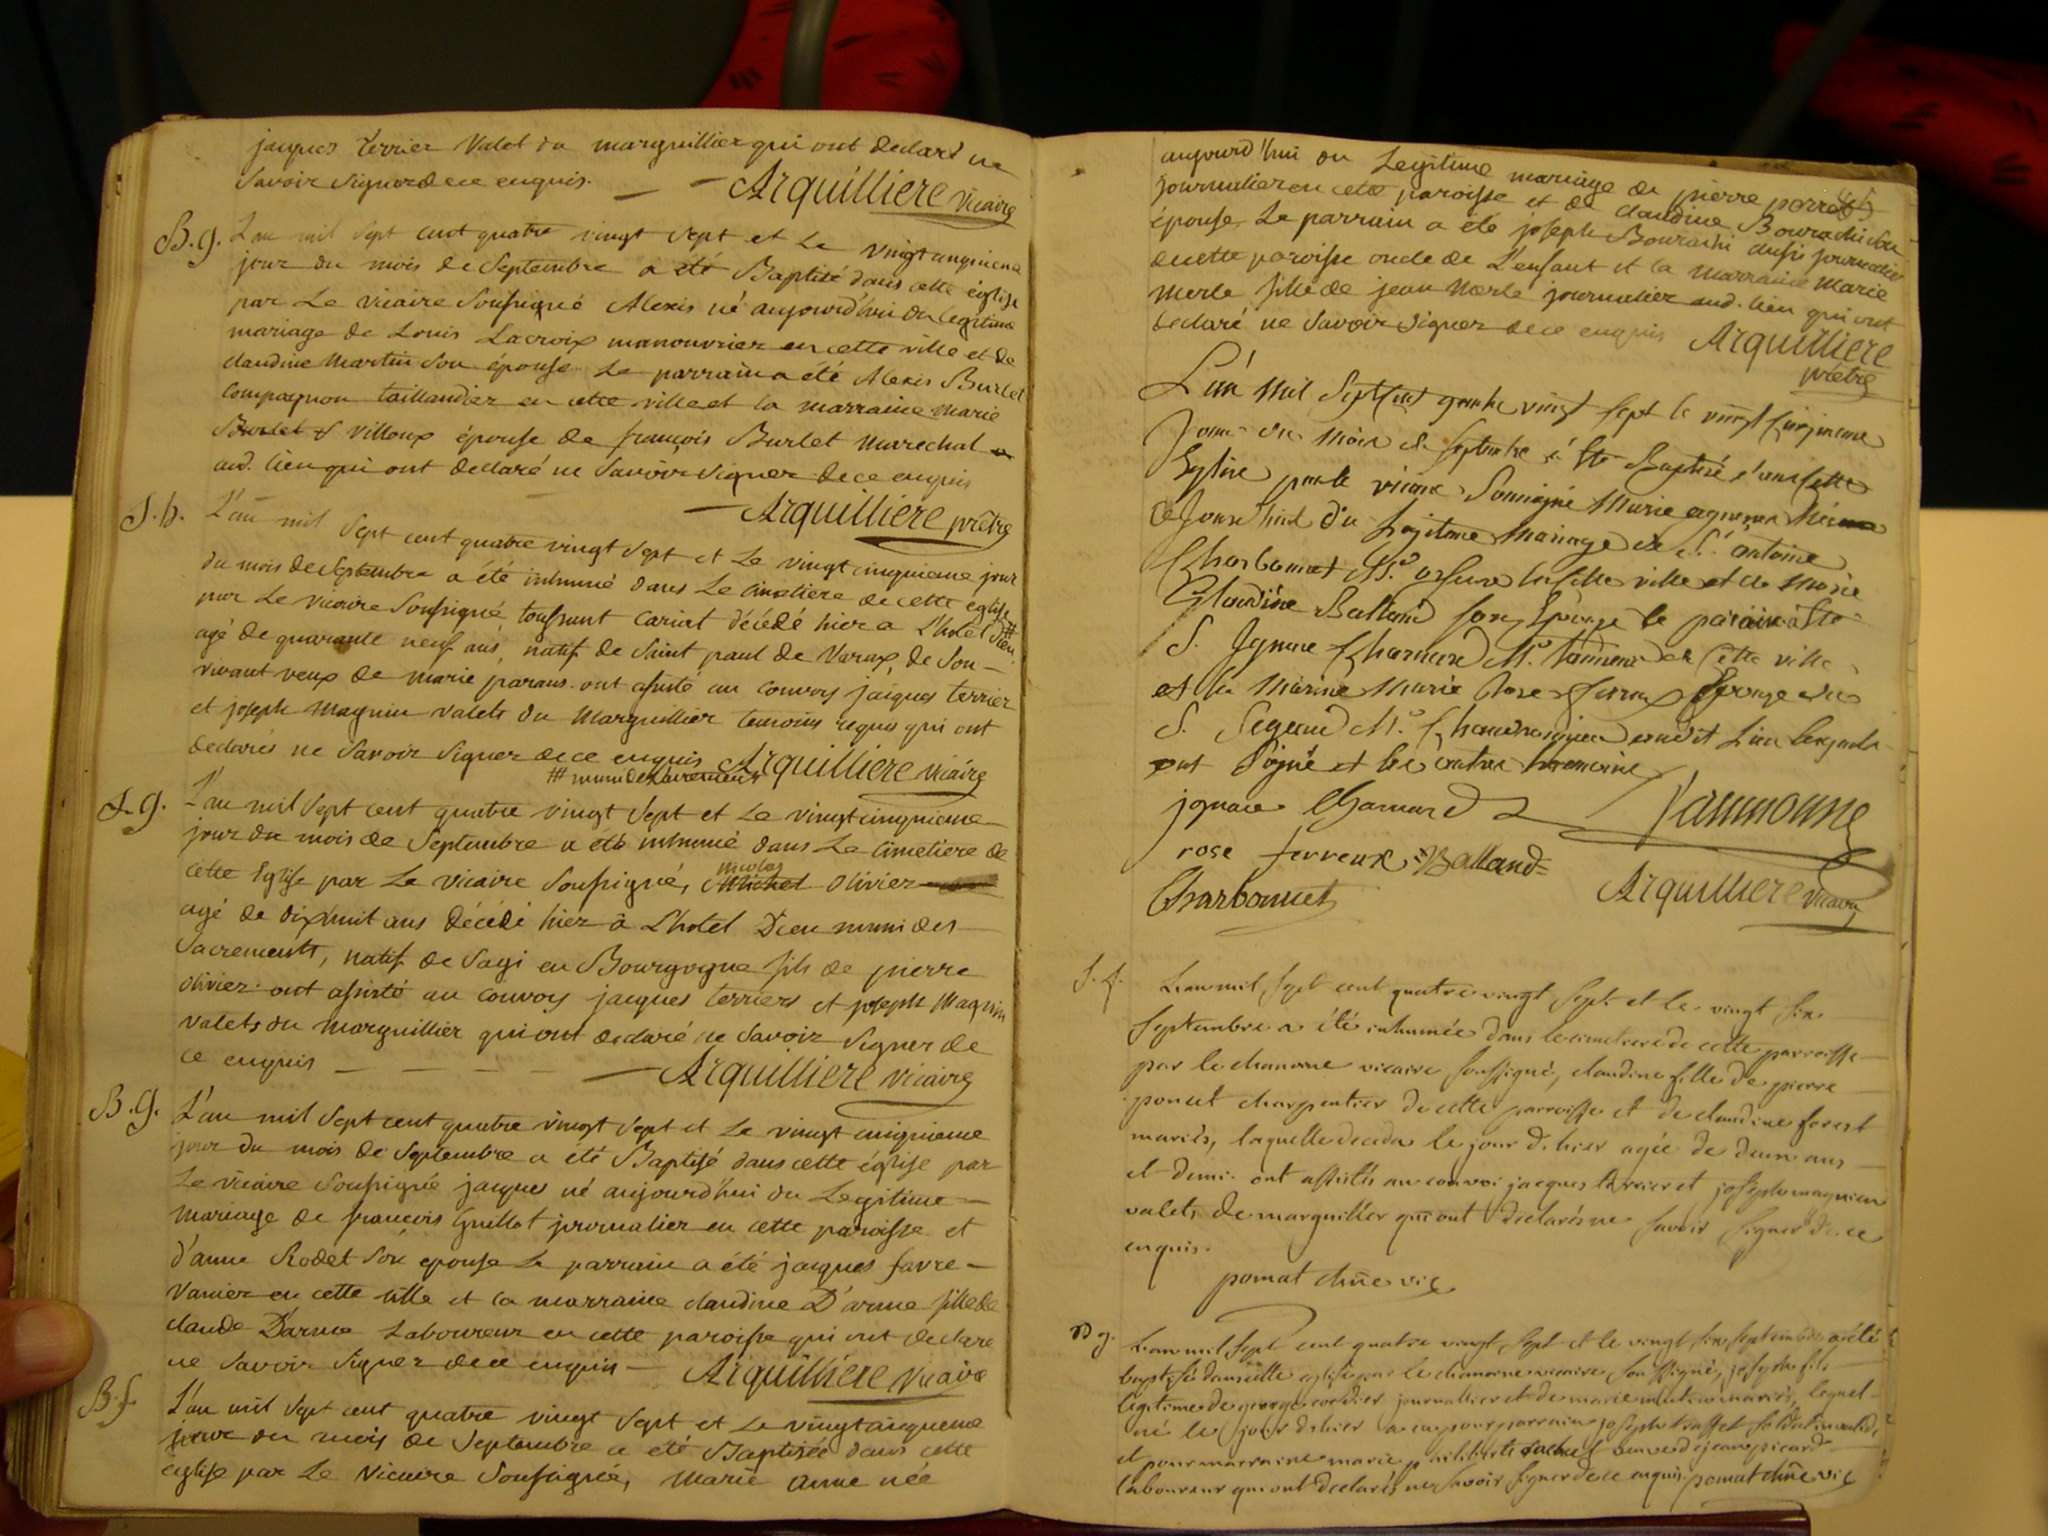 jacques terrier valet du marguillier qui ont declaré ne
Savoir Signer de ce enquis. — — Arquilliere vicaire
B.g. L'an mil Sept cent quatre vingt Sept et Le vingt cinquieme
jour du mois de Septembre a été Baptisé dans cette église
par Le vicaire Soussigné Alexis né aujourd'hui du legitime
mariage de Louis Lacroix manouvrier en cette ville et de
claudine Martin Son épouse Le parrain a été Alexis Burlet
compagnon taillandier en cette ville et la marraine Marie
villoux épouse de françois Burlet Marechal
aud. lieu qui ont declaré ne Savoir Signer de ce enquis
— Arquilliere prêtre
S.h. L'an mil Sept cent quatre vingt Sept et Le vingt cinquieme jour
du mois de Septembre a été inhumé dans Le cimetiere de cette eglise
par Le vicaire Soussigné, toussant cariat décédé hier a L'hotel Dieu #
agé de quarante neuf ans, natif de Saint paul de Varax, de Son —
vivant veuf de marie parans. ont assisté au convoy jacques terrier
et joseph Magnin valets du Marguillier temoins requis qui ont
declarés ne Savoir Signer de ce enquis Arquilliere vicaire
# muni de sacrements
S.g. L'an mil Sept cent quatre vingt Sept et Le vingt cinquieme
jour du mois de Septembre a été inhumé dans Le cimetiere de
cette Eglise par Le vicaire Soussigné, Michel nicolas olivier
agé de dix huit ans décédé hier à L'hotel Dieu muni des
Sacrements, natif de Sagi en Bourgogne fils de pierre
olivier. ont assisté au convoy jacques terriers et joseph Magnin
valets du Marguillier qui ont declaré ne Savoir Signer de
ce enquis — — — — Arquilliere vicaire
B.g. L'an mil Sept cent quatre vingt Sept et Le vingt cinquieme
jour du mois de Septembre a été Baptisé dans cette église par
Le vicaire Soussigné jacques né aujourd'hui du Legitime
mariage de françois Guillot journalier en cette paroisse et
d'anne Rodet Son epouse Le parrain a été jacques favre —
Vanier en cette ville et la marraine claudine D'arme fille de
claude D'arme Laboureur en cette paroisse qui ont declaré
ne Savoir Signer de ce enquis — Arquilliere vicaire
B.f. L'an mil Sept cent quatre vingt Sept et Le vingt cinquieme
jour du mois de Septembre a été Baptisée dans cette
église par Le vicaire Soussigné, Marie anne née
aujourd'hui du Legitime mariage de pierre perret
journalier en cette paroisse et de claudine Bourachi Son
épouse. Le parrain a été joseph Bourachi aussi journalier
de cette paroisse oncle de L'enfant et la marraine Marie
Merle fille de jean Merle journalier aud. lieu qui ont
declaré ne Savoir Signer de ce enquis Arquilliere
prêtre
L'an Mil Sept Cent quatre vingt Sept le vingt Cinquieme
Jour du Mois de Septembre a été Baptisé dans Cette
Eglise par le vicaire Soussigné Marie
ce Jourd'hui du Legitime Mariage de S.r antoine
Charbonnet M.e en Cette ville et de Marie
Claudine Balland son Epouse le parain a été
S. Ignace Charnard M.e tanneur de Cette ville
et la Marine Marie Rose ferreux Epouse du
S. Segaud M.e audit Lieu lesquels
ont Signé et les autres
jgnace Charnard
rose ferreux Balland
Charbonnet Arquilliere vicaire
S.f. L'an mil Sept cent quatre vingt Sept et le vingt six
Septembre a été inhumée dans le cimetiere de cette parroisse
par le chanoine vicaire soussigné, claudine fille de pierre
poncet charpentier de cette parroisse et de claudine forest
mariés, laquelle deceda le jour d'hier agée de deux ans
et demi. ont assistés au convoi jacques terrier et joseph magnien
valets de marguillier qui ont declarés ne savoir signer de ce
enquis.
pomat chne vic
B g. L'an mil Sept cent quatre vingt Sept et le vingt six septembre a été
baptisé dans cette eglise par le chanoine vicaire soussigné, joseph fils
legitime de george cordier journallier et de marie mariés, lequel
né le jour d'hier a eu pour parrain joseph soldat invalide
et pour marraine marie philiberte veuve de jean picard
laboureur qui ont declarés ne savoir signer de ce enquis. pomat chne vic